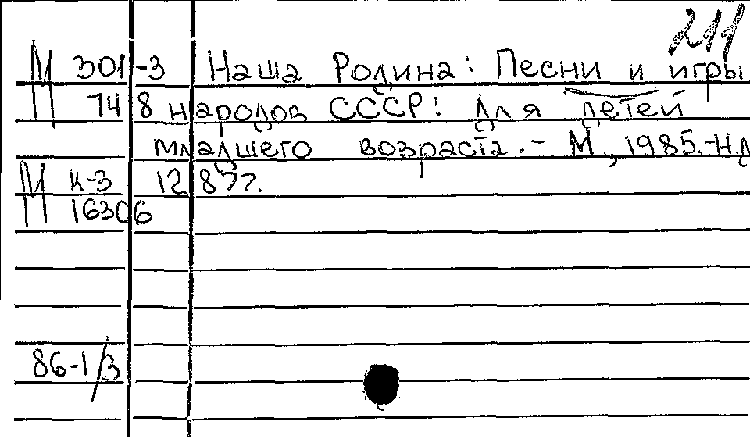 211
М 301-3 Наша Родина: Песни и игры
74 8 народов СССР: Для детей
младшего возраста. - М, 1985. - Нд
М К-3 12
16306
86-1/3